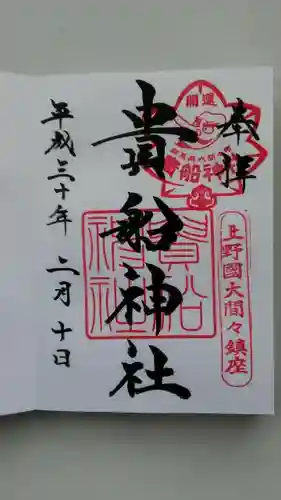 奉拝
開運
上野國大間々鎮座
貴船神社
貴船神社
平成三十年 二月 十日